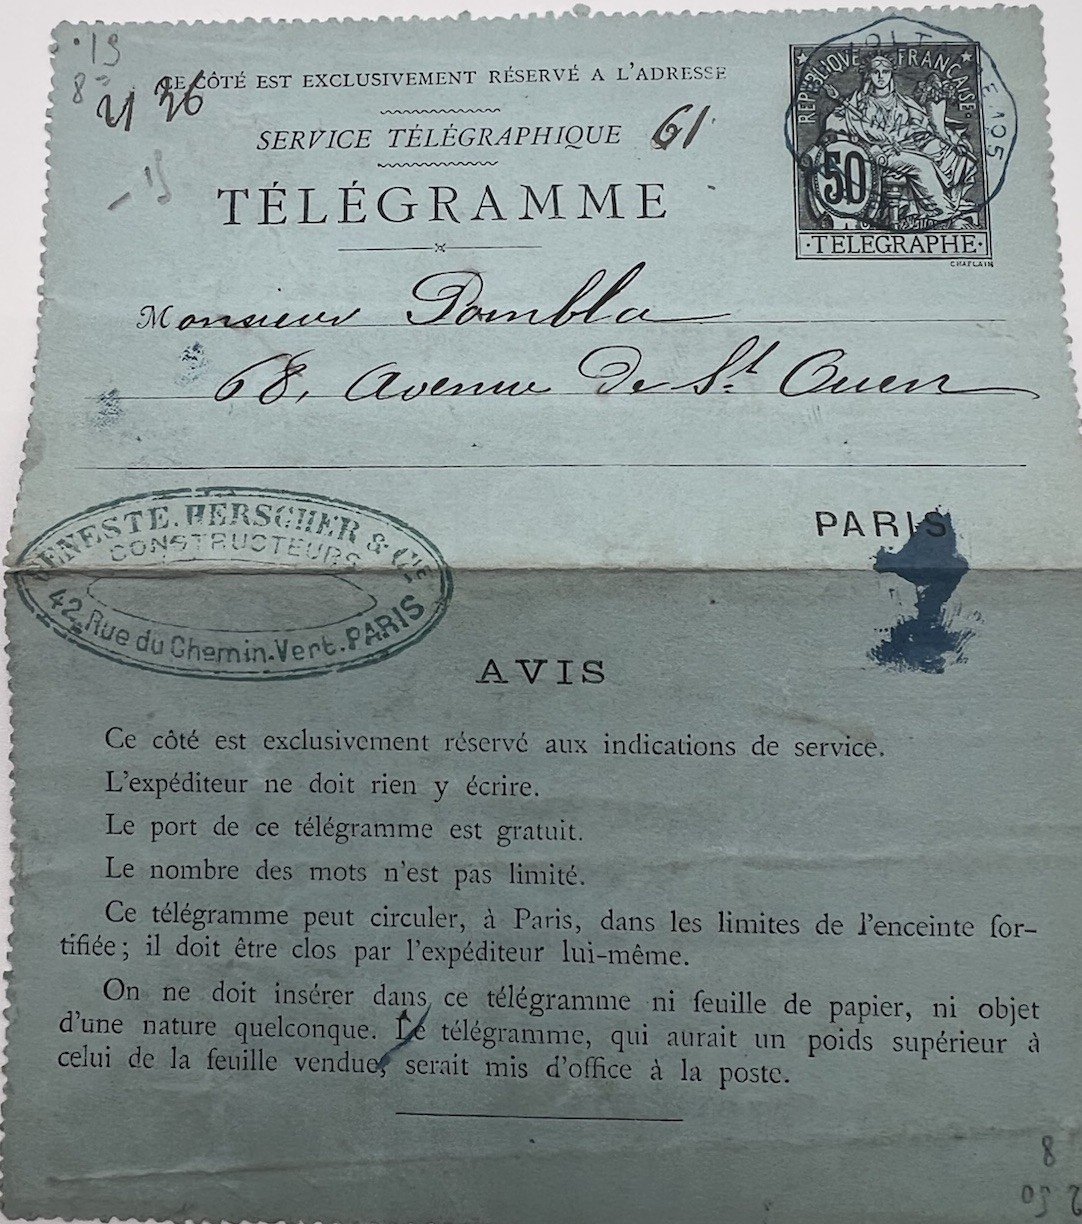 ·19
8
21 36
CE CÔTÉ EST EXCLUSIVEMENT RÉSERVÉ A L'ADRESSE
SERVICE TÉLÉGRAPHIQUE 61
-15
TÉLÉGRAMME
RÉPUBLIQUE FRANÇAISE
50
·TELEGRAPHE·
CHAPLAIN
VOLTAIRE 105
Monsieur Pombla
68, Avenue De St. Ouen
PARIS
GENESTE. HERSCHER & CIE
CONSTRUCTEURS
42, Rue du Chemin-Vert. PARIS
AVIS
Ce côté est exclusivement réservé aux indications de service.
L'expéditeur ne doit rien y écrire.
Le port de ce télégramme est gratuit.
Le nombre des mots n'est pas limité.
Ce télégramme peut circuler, à Paris, dans les limites de l'enceinte for-
tifiée; il doit être clos par l'expéditeur lui-même.
On ne doit insérer dans ce télégramme ni feuille de papier, ni objet
d'une nature quelconque. Le télégramme, qui aurait un poids supérieur à
celui de la feuille vendue, serait mis d'office à la poste.
8